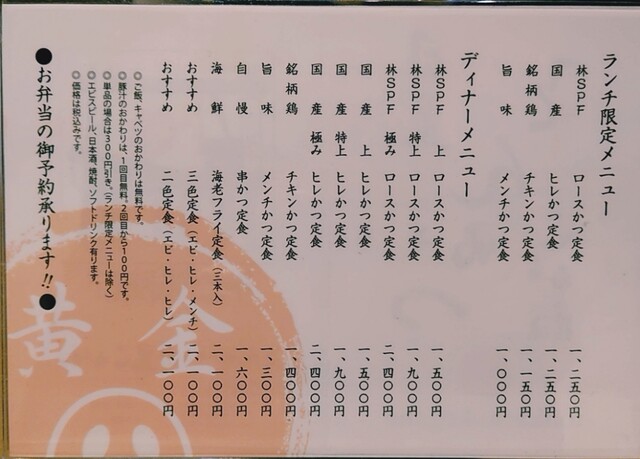 ランチ限定メニュー
林SPF ロースかつ定食 一、二五〇円
国産 ヒレかつ定食 一、二五〇円
銘柄鶏 チキンかつ定食 一、一五〇円
旨味 メンチかつ定食 一、〇〇〇円
ディナーメニュー
林SPF 上 ロースかつ定食 一、五〇〇円
林SPF 特上 ロースかつ定食 一、九〇〇円
林SPF 極み ロースかつ定食 二、四〇〇円
国産 上 ヒレかつ定食 一、五〇〇円
国産 特上 ヒレかつ定食 一、九〇〇円
国産 極み ヒレかつ定食 二、四〇〇円
銘柄鶏 チキンかつ定食 一、四〇〇円
旨味 メンチかつ定食 一、三〇〇円
自慢 串かつ定食 一、六〇〇円
海鮮 海老フライ定食(三本入) 二、一〇〇円
おすすめ 三色定食(エビ・ヒレ・メンチ) 二、一〇〇円
おすすめ 二色定食(エビ・ヒレ・ヒレ) 二、一〇〇円
◎ご飯、キャベツのおかわりは無料です。
◎豚汁のおかわりは、1回目無料、2回目から100円です。
◎単品の場合は300円引き。(ランチ限定メニューは除く)
◎エビスビール、日本酒、焼酎、ソフトドリンク有ります。
◎価格は税込みです。
●お弁当の御予約承ります!!●
黄金